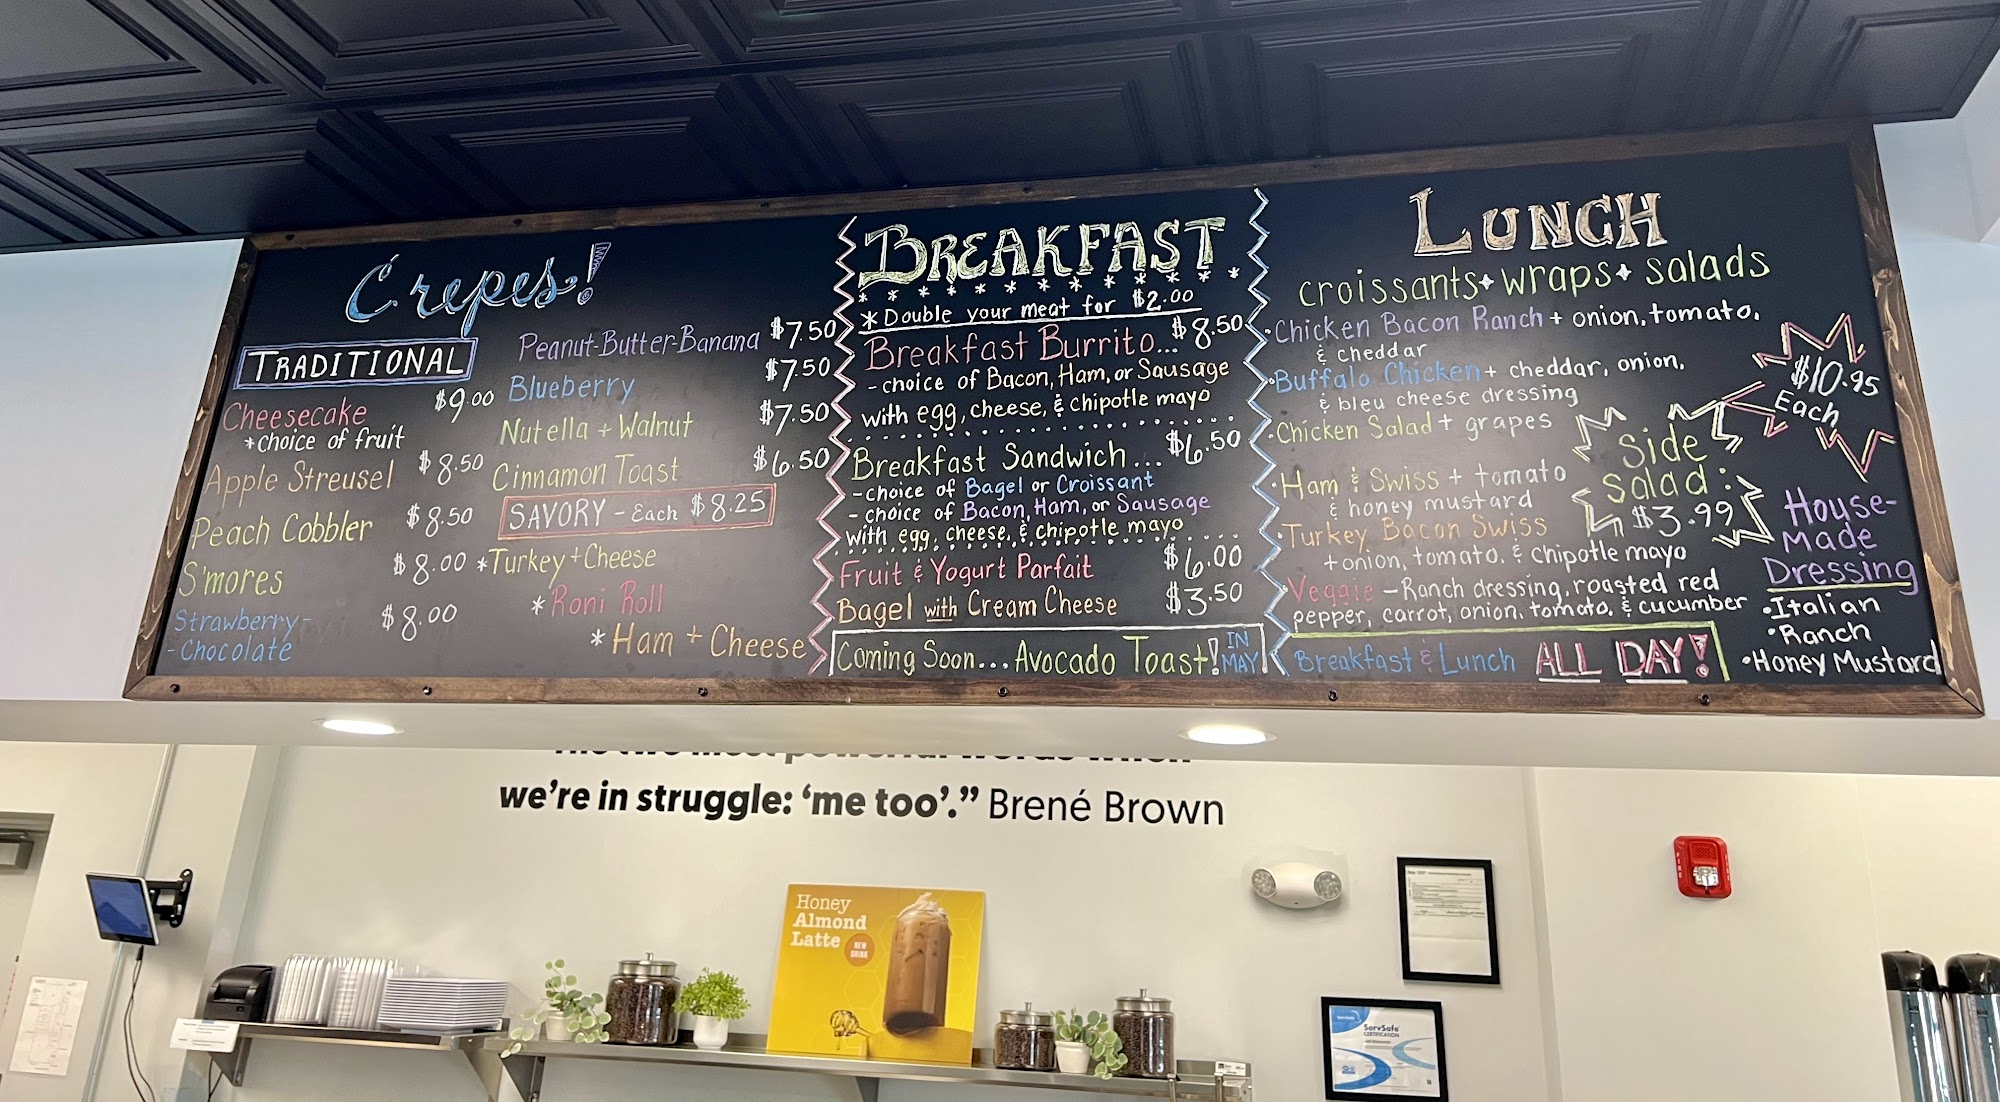 Crepes!
TRADITIONAL
Cheesecake $9.00
*choice of fruit
Apple Streusel $8.50
Peach Cobbler $8.50
S'mores $8.00
Strawberry- $8.00
-Chocolate
Peanut-Butter-Banana $7.50
Blueberry $7.50
Nutella + Walnut $7.50
Cinnamon Toast $6.50
SAVORY - Each $8.25
*Turkey + Cheese
*Roni Roll
*Ham + Cheese
BREAKFAST
*Double your meat for $2.00
Breakfast Burrito... $8.50
- choice of Bacon, Ham, or Sausage
with egg, cheese, & chipotle mayo
Breakfast Sandwich... $6.50
- choice of Bagel or Croissant
- choice of Bacon, Ham, or Sausage
with egg, cheese, & chipotle mayo
Fruit & Yogurt Parfait $6.00
Bagel with Cream Cheese $3.50
Coming Soon... Avocado Toast! IN
MAY
LUNCH
croissants + wraps + salads
•Chicken Bacon Ranch + onion, tomato,
& cheddar
•Buffalo Chicken + cheddar, onion,
& bleu cheese dressing
•Chicken Salad + grapes
•Ham & Swiss + tomato
& honey mustard
•Turkey Bacon Swiss
+ onion, tomato, & Chipotle mayo
•Veggie - Ranch dressing, roasted red
pepper, carrot, onion, tomato, & cucumber
Breakfast & Lunch ALL DAY!
$10.95
Each
Side
Salad:
$3.99
House-
Made
Dressing
•Italian
•Ranch
•Honey Mustard
we're in struggle: 'me too'." Brené Brown
Honey
Almond
Latte
NEW
DRINK
ServSafe
CERTIFICATION